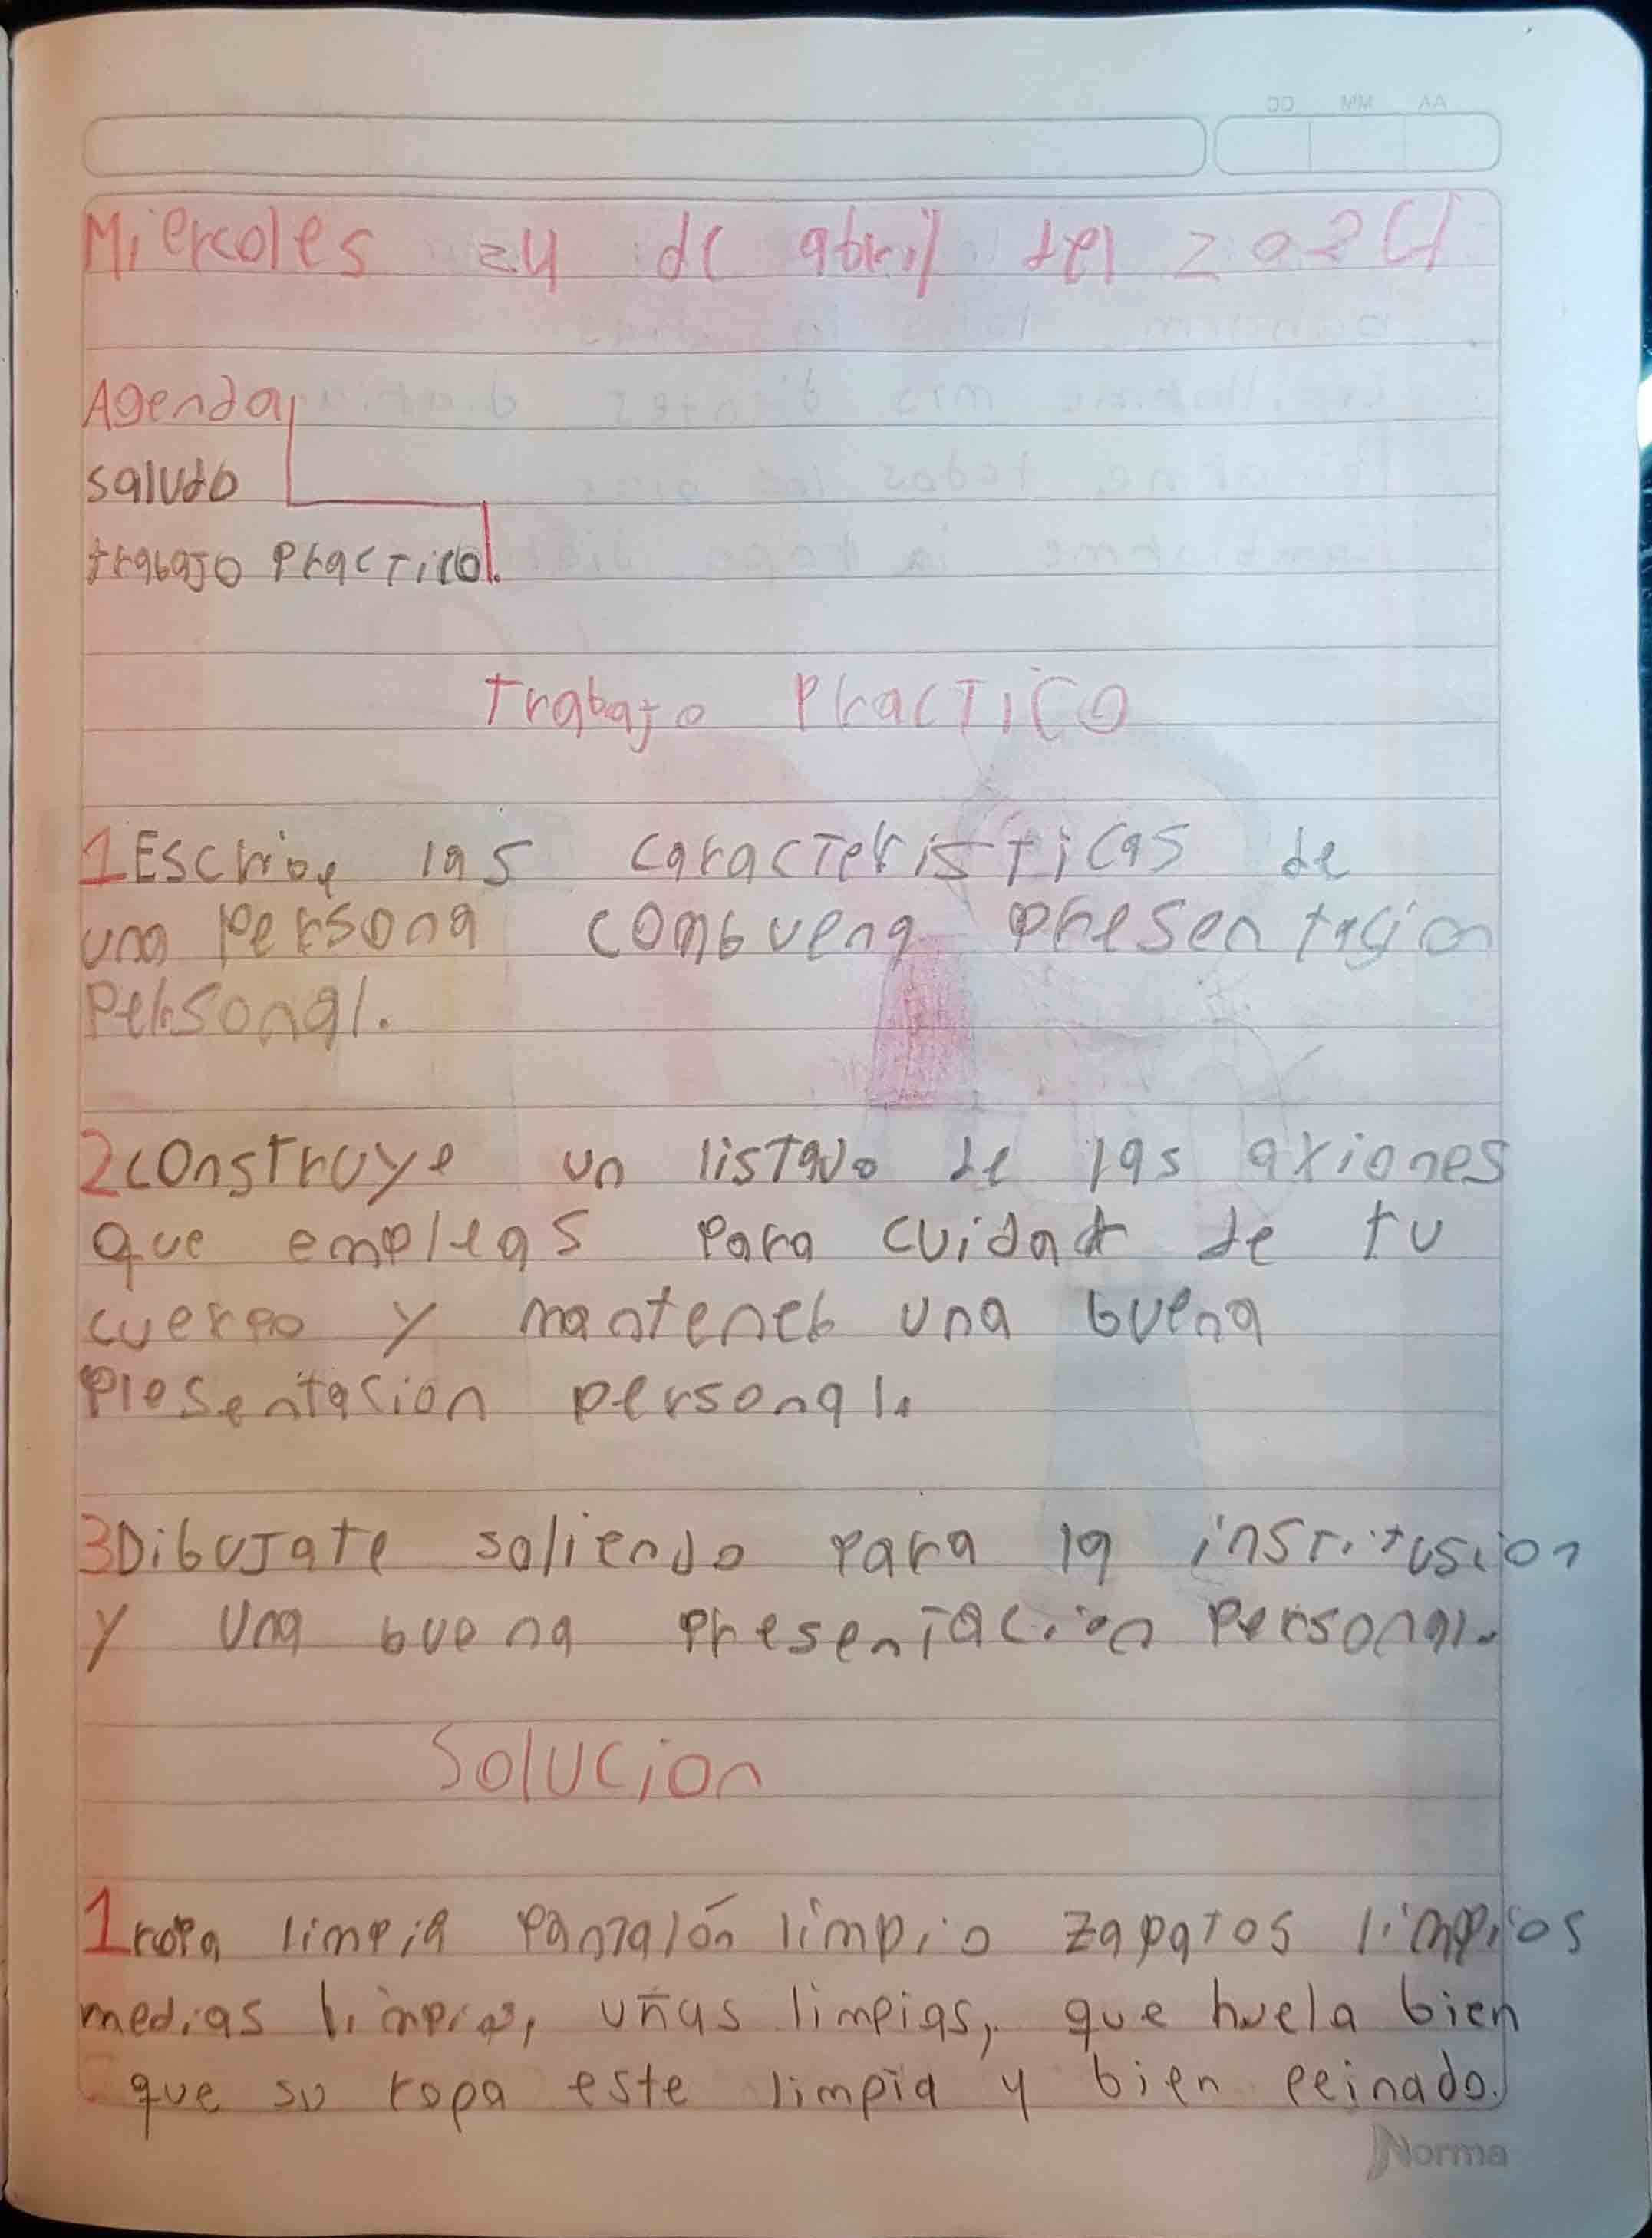 AA MM CC
Miercoles 24 de abril del 2024
Agenda
saludo
trabajo Practico.
Trabajo PracTiCO
1 Escribe las caracTerisTicas de
una persona combuena presentasion
Personal.
2 construye un lisTado de las axiones
que empleas para cuidar de tu
cuerpo y mantener una buena
Plesentasion personal.
3 DibuJate saliendo para la insTitusion
y una buena presenTacion Personal.
Solucion
1 ropa limpia panTalón limpio zapaTos limpios
medias limpias, uñas limpias, que huela bien
que su ropa este limpia y bien peinado.
Norma